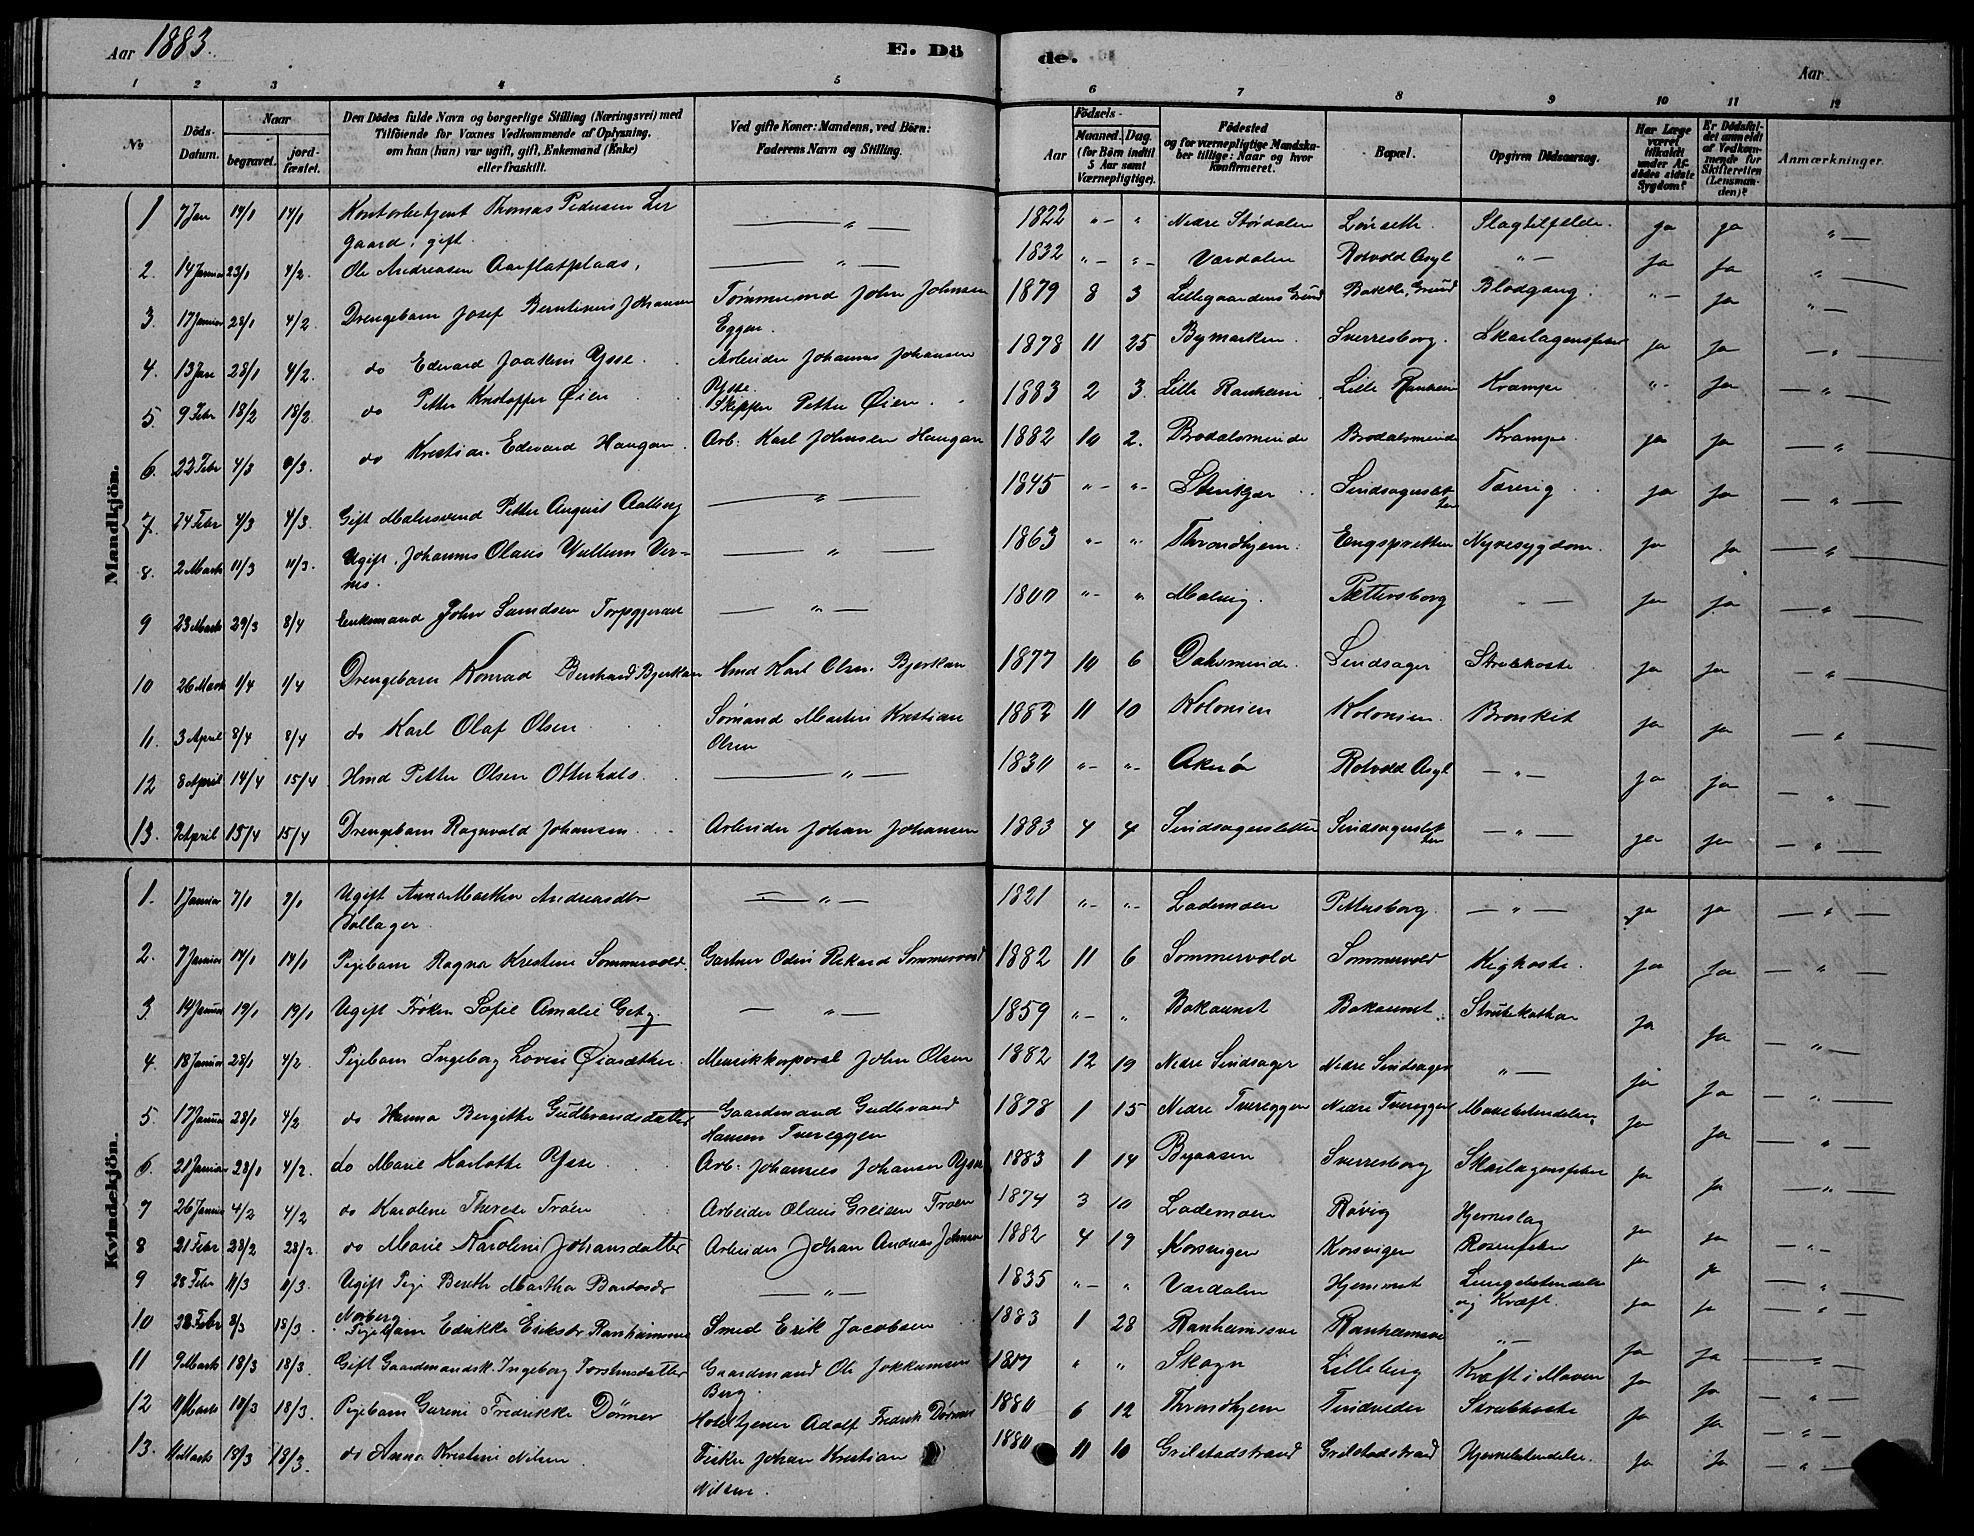 Aar 1883.
E. Dö
de.
Aar
1 2 3 4 5 6 7 8 9 10 11 12
No
Döds-Datum.
Naar
begravet.
jordfæstet.
Den Dödes fulde Navn og borgerlige Stilling (Næringsvei) med
Tilföiende for Voxnes Vedkommende af Oplysning,
om han (hun) var ugift, gift, Enkemand (Enke)
eller fraskilt.
Ved gifte Koner: Mandens, ved Börn:
Faderens Navn og Stilling.
Födsels-
Aar
Maaned. Dag.
(for Börn indtil
5 Aar samt
Værnepligtige).
Födested
og for værnepligtige Mandskaber tillige: Naar og hvor
konfirmeret.
Bopæl.
Opgiven Dödsaarsag.
Har Læge
været
tilkaldt
under Afdödes sidste
Sygdom?
Er Dödsfaldet anmeldt
af Vedkommende for
Skifteretten
(Lensmanden)?
Anmærkninger.
Mandkjön.
1 7 Jan 14/1 14/1 Kontorbetjent Thomas Pedersen Lergaard, gift — " — 1822 " - " Nedre Stördalen Lönseth Slagtilfelde. ja ja "
2. 14 Januar 23/1 4/2. Ole Andreasen Aarflatplads, — " — 1832 " - " - Værdalen Rotvold Asyl " - ja ja "
3. 17 Januar 28/1 4/2. Drengebarn Josef Berntinus Johansen Tømmermd John Johnsen Eggen. 1879 8 3 Lillegaardens Grund Bakke, Grund Blodgang. " - ja "
4. 13 Jan 28/1 4/2. do Edvard Joakim Ysse. Arbeider Johannes Johansen Ysse. 1878 11 25 Bymarken Sverresborg. Skarlagensfeber ja ja "
5. 9 Febr 18/2 18/2. do Petter Kristoffer Øien Skipper Petter Øien. 1883 2 3. Lille Ranheim Lille Ranheim Krampe " - ja "
6. 22 Febr 4/3 4/3. do Kristian Edvard Haugan. Arb. Karl Johnsen Haugan 1882 10 2. Brodalsminde Brodalsminde Krampe. ja ja "
7. 24 Febr 4/3 4/3. Gift Malersvend Petter August Aalberg — " — 1845 " - " - Stenkjær Sindsagersletten Tæring ja ja "
8. 2 Marts 11/3 11/3. Ugift, Johannes Olaus Vullum Vernes. — " — 1863 " - " Throndhjem. Engspretten Nyresygdom. ja ja "
9 23 Marts 29/3 8/4 Enkemand John Pettersborg — " — 1800 " - " Malvig. " — ja ja "
10 26 Marts 1/4 1/4 Drengebarn Konrad Bernhard Bjerkan Hmd Karl Olsen Bjerkan 1877 10 6 Dalsminde. Sindsager Strubehoste ja ja "
11. 3 April 8/4 8/4 do Karl Olaf Olsen Sømand Martin Kristian Olsen 1882 11 10 Kolonien Kolonien. Bronkit ja ja "
12 8 April 14/4 15/4 Hmd Petter Olsen Otterhals. — " — 1830 " - " - Akerö Rotvold Asyl — " — ja ja "
13. 9 April 15/4 15/4 Drengebarn Ragnvald Johansen Arbeider Johan Johansen 1883 4 4 Sindsagersletten Sindsagersletten — " — ja ja "
Kvindekjön.
1. 1 Januar 7/1 7/1 Ugift Anna Martha Andreasdtr Vollager. — " — 1821 " - " - Lademoen Pettersborg. — " — ja ja "
2. 7 Januar 14/1 14/1 Pigebarn Ragna Kristine Sommervold. Gartner Odin Rikard Sommervold 1882 11 6 Sommervold Sommervold Kighoste. ja ja "
3. 14 Januar 19/1 19/1 Ugift Frøken Sofie Amalie Getz. — " — 1859 " - " Bakaunet Bakaunet. Strubekathar ja ja "
4. 18 Januar 28/1 4/2. Pigebarn Ingeborg Lovise Øiasæther. Musikkorporal John Olsen 1882 12 19 Nedre Sindsager Nedre Sindsager " — ja ja "
5. 17 Januar 28/1 4/2 do Hanna Bergitte Gudbrandsdatter Gaardmand Gudbrand Hansen Tvereggen 1878 1 15 Nedre Tvereggen Nedre Tvereggen Mavebetendelse. ja ja "
6. 21 Januar 28/1 4/2. do Marie Karlotte Ysse. Arb. Johannes Johansen Ysse 1883 1 14 Byaasen Sverresborg Skarlagensfeber ja ja "
7 26 Januar 4/2 4/2 do Karoline Therese Troen Arbeider Olaus Troen 1874 3 10 Lademoen Røvig Hjerneslag ja ja "
8 21 Febr 28/2 28/2. do Marie Karoline Johansdatter Arbeider Johan Andreas Johnsen 1882 4 19 Korsvigen Korsvigen Rosenfeber ja ja "
9 28 Febr 11/3 11/3. Ugift Pige Bereth Martha Bardosdr Norberg — " — 1835 " - " Værdalen Hjemmet Lungebetendelse og Kræft. ja ja "
10 28 Febr 8/3 18/3. Pigebarn Edrikke Eriksdr Ranheimsve Smed Erik Jacobsen 1883 1 28 Ranheimsve Ranheimsve " — ja ja "
11 9 Marts 18/3 18/3. Gift Gaardmandsk. Ingeborg Torstensdatter Gaardmand Ole Jokkumsen Berg. 1817 " " Skogn Lilleberg Kræft i Maven ja ja "
12 11 Marts 18/3 18/3. Pigebarn Gurine Fredrikke Dørmer Hoteltjener Adolf Fredrik Dørmer 1880 6 12 Throndhjem Tindveder Strubehoste ja ja "
13. 11 Marts 18/3 18/3. do Anna Kristine Nilsen Fisker Johan Kristian Nilsen. 1880 11 10 Grilstadstrand Grilstadstrand Hjernebetendelse. ja ja "